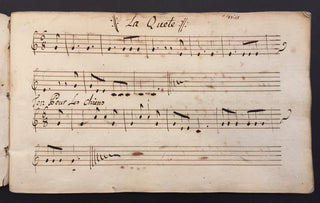 La Quete
Ton Pour Les Chiens